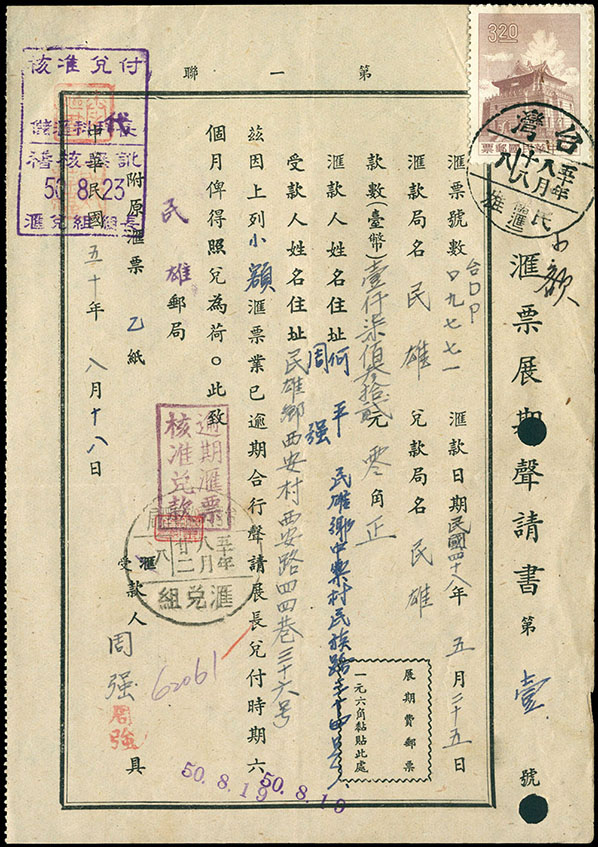 第一聯
3.20
中華民國郵票
台灣
五十年
八月
十八
八
民雄
儲匯
小額
匯票展期聲請書 第壹號
台DDP
匯票號數 0九七七一 匯款日期民國四十八年五月二十五日
匯款局名 民雄 兌款局名 民雄
款數(臺幣)壹仟柒佰叁拾貳元零角正
匯款人姓名住址 何平 民雄鄉中樂村民族路三十四号
受款人姓名住址 周強 民雄鄉西安村西安路四四巷三十六号
茲因上列小額匯票業已逾期合行聲請展長兌付時期六
個月俾得照兌為荷。此致
民雄郵局
附原匯票乙紙
受款人 周強 具
匯
周強
中華民國五十年八月十八日
展期費郵票
一元六角黏貼此處
核准兌付
儲匯科科長
代
稽核業訖
50.8.23
匯兌組組長
逾期匯票
核准兌款
五十年
八月
廿二
八
匯兌組
62061
50.8.19
50.8.19